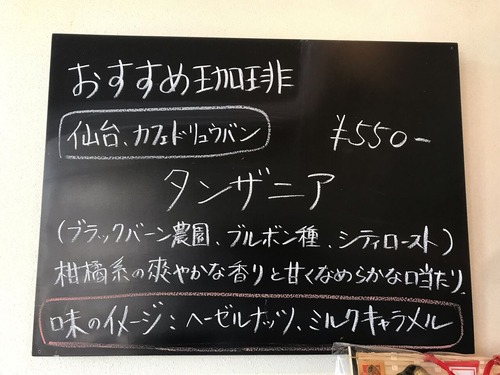 おすすめ珈琲
仙台、カフェドリュウバン ¥550-
タンザニア
(ブラックバーン農園、ブルボン種、シティロースト)
柑橘系の爽やかな香りと甘くなめらかな口当たり
味のイメージ:ヘーゼルナッツ、ミルクキャラメル